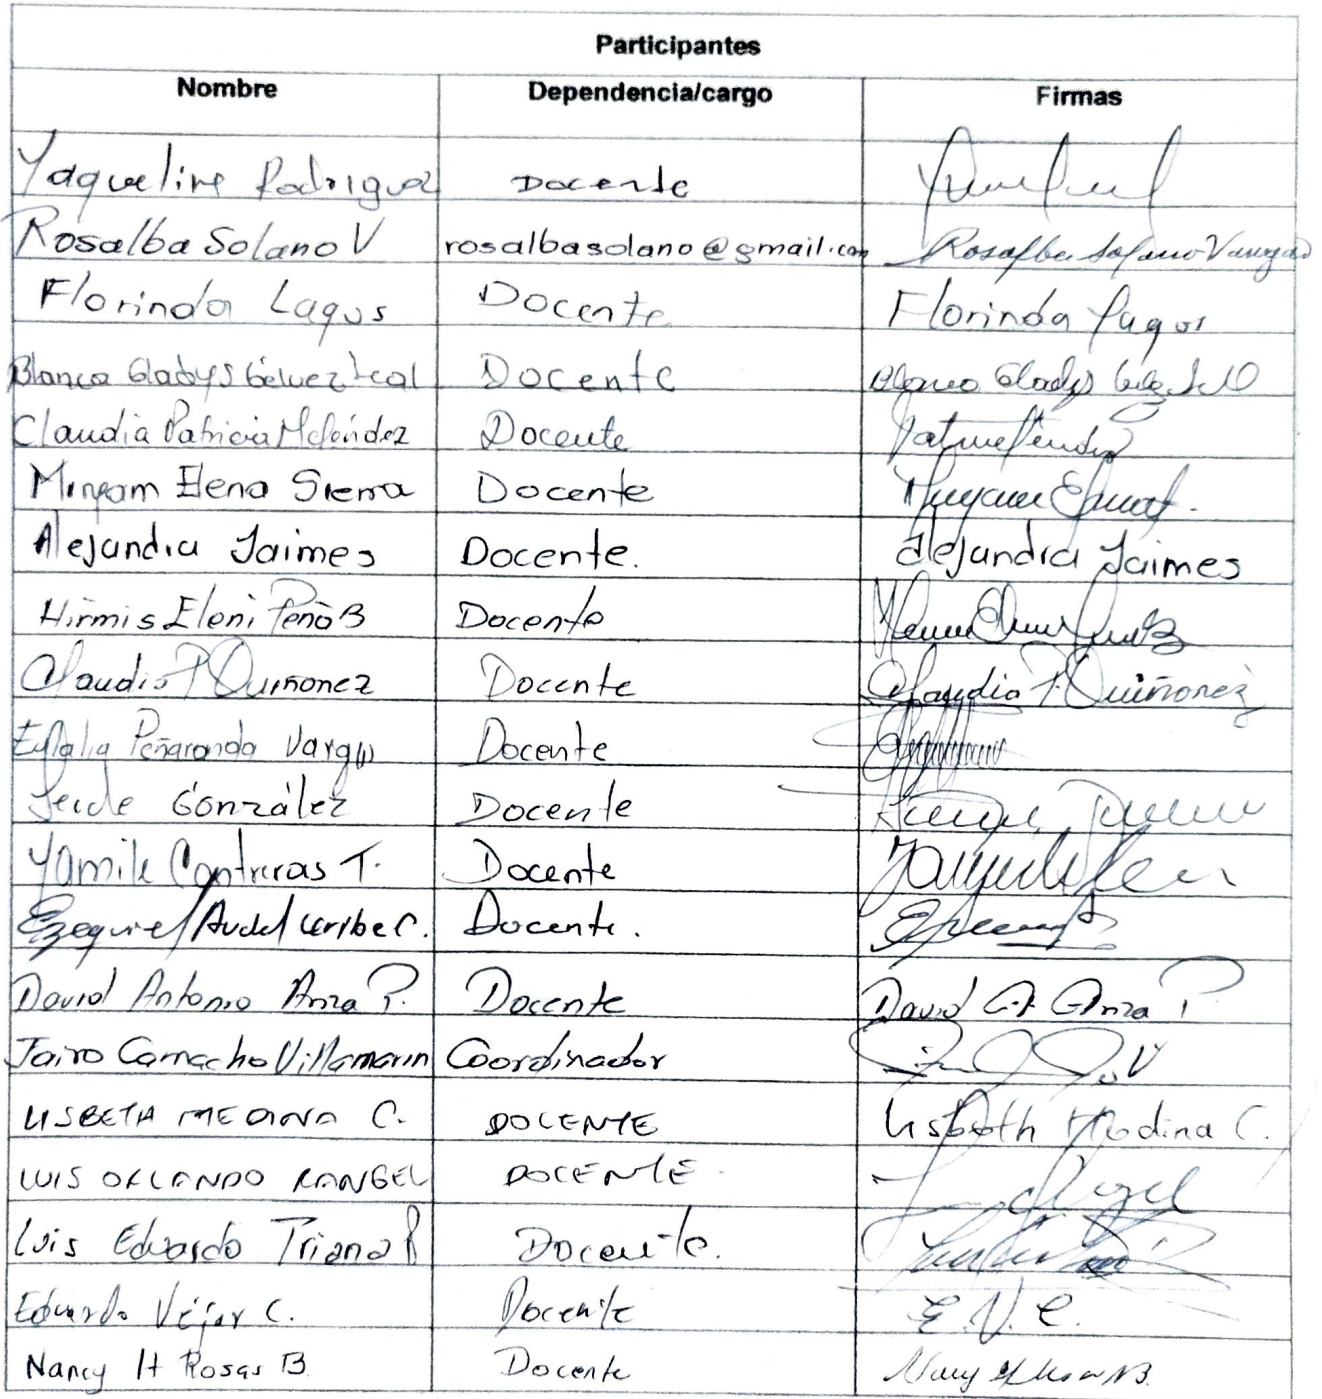 Participantes
Nombre Dependencia/cargo Firmas
Yaqueline Rodriguez Docente
Rosalba Solano V rosalbasolano@gmail.com Rosalba Solano Vanegas
Florinda Lagos Docente Florinda Lagos
Blanca Gladys Gélvez Leal Docente Blanca Gladys
Claudia Patricia Meléndez Docente
Miryam Elena Sierra Docente
Alejandra Jaimes Docente. alejandra Jaimes
Hirmis Eleni Peña B Docente
Claudia P Quiñonez Docente Claudia P. Quiñonez
Eulalia Peñaranda Vargas Docente
González Docente
Yamile Contreras T. Docente
Ezequiel Audel Uribe C. Docente.
David Antonio Anza P. Docente David A. Anza P.
Jairo Camacho Villamarin Coordinador
LISBETH MEDINA C. DOCENTE Lisbeth Medina C.
LUIS ORLANDO RANGEL DOCENTE
Luis Eduardo Triana R Docente.
Eduardo Véjar C. Docente E.V.C.
Nancy H Rosas B. Docente